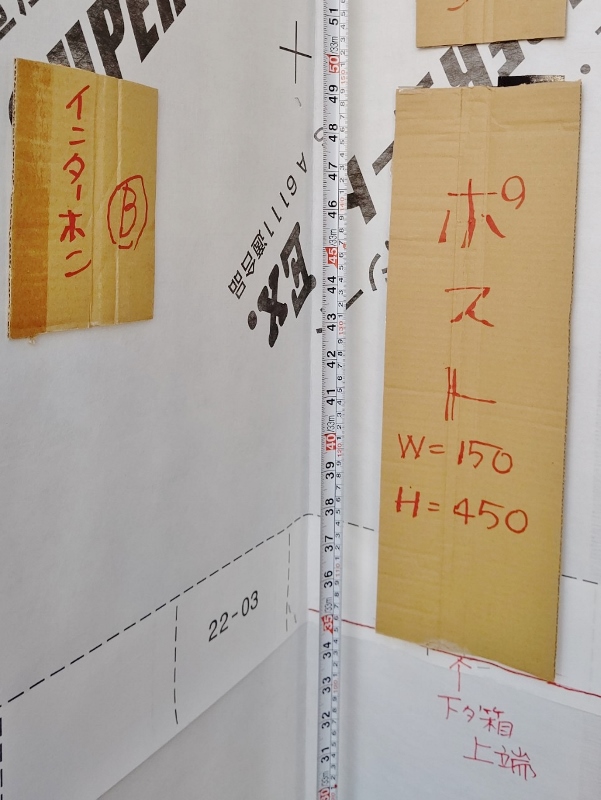 SUPER
インターホン
B
A6111適合品
Ex.
22-03
ポスト
W=150
H=450
下タ箱
上端
51
50
49
48
47
46
45
44
43
42
41
40
39
38
37
36
35
34
33
32
31
30